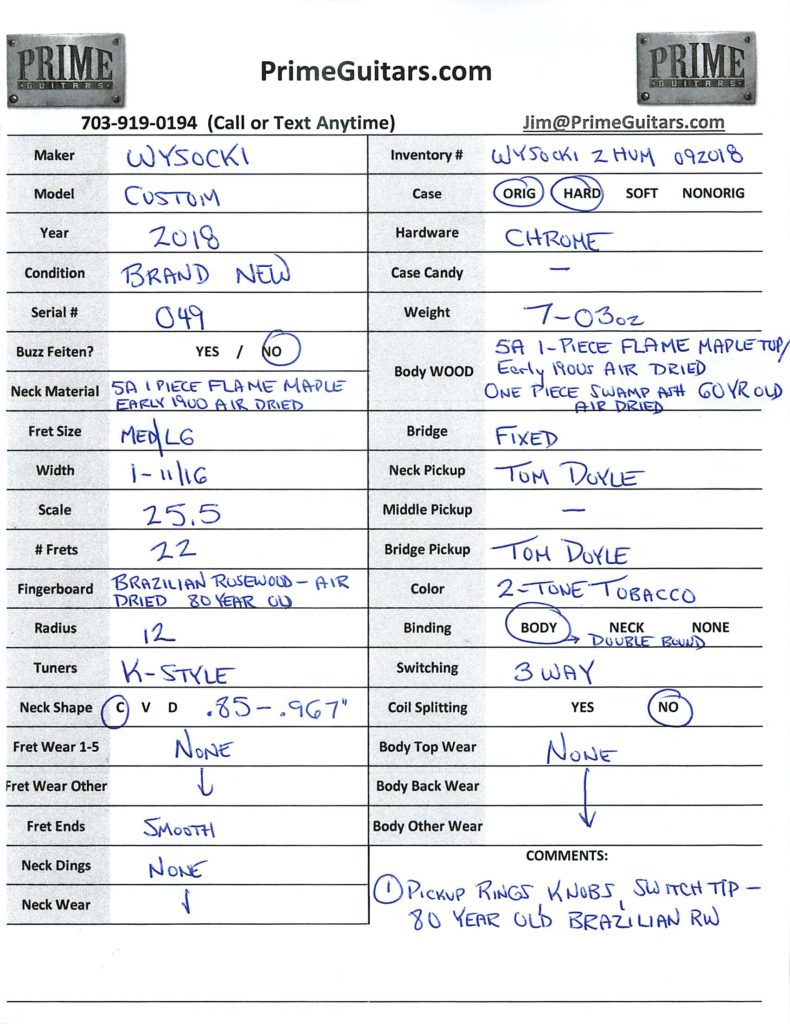 PRIME
GUITARS
PrimeGuitars.com
PRIME
GUITARS
703-919-0194 (Call or Text Anytime)
Jim@PrimeGuitars.com
Maker WYSOCKI
Model CUSTOM
Year 2018
Condition BRAND NEW
Serial # 049
Buzz Feiten? YES / NO
Neck Material 5A 1 PIECE FLAME MAPLE
EARLY 1900 AIR DRIED
Fret Size MED/LG
Width 1-11/16
Scale 25.5
# Frets 22
Fingerboard BRAZILIAN ROSEWOOD - AIR
DRIED 80 YEAR OLD
Radius 12
Tuners K-STYLE
Neck Shape C V D .85-.967"
Fret Wear 1-5 NONE
Fret Wear Other ↓
Fret Ends SMOOTH
Neck Dings NONE
Neck Wear ↓
Inventory # WYSOCKI 2 HUM 092018
Case ORIG HARD SOFT NONORIG
Hardware CHROME
Case Candy —
Weight 7-03oz
Body WOOD 5A 1-PIECE FLAME MAPLE TOP/
Early 1900s AIR DRIED
ONE PIECE SWAMP ASH 60 YR OLD
AIR DRIED
Bridge FIXED
Neck Pickup TOM DOYLE
Middle Pickup —
Bridge Pickup TOM DOYLE
Color 2-TONE TOBACCO
Binding BODY NECK NONE
→ DOUBLE BOUND
Switching 3 WAY
Coil Splitting YES NO
Body Top Wear NONE
Body Back Wear ↓
Body Other Wear
COMMENTS:
① PICKUP RINGS, KNOBS, SWITCH TIP -
80 YEAR OLD BRAZILIAN RW